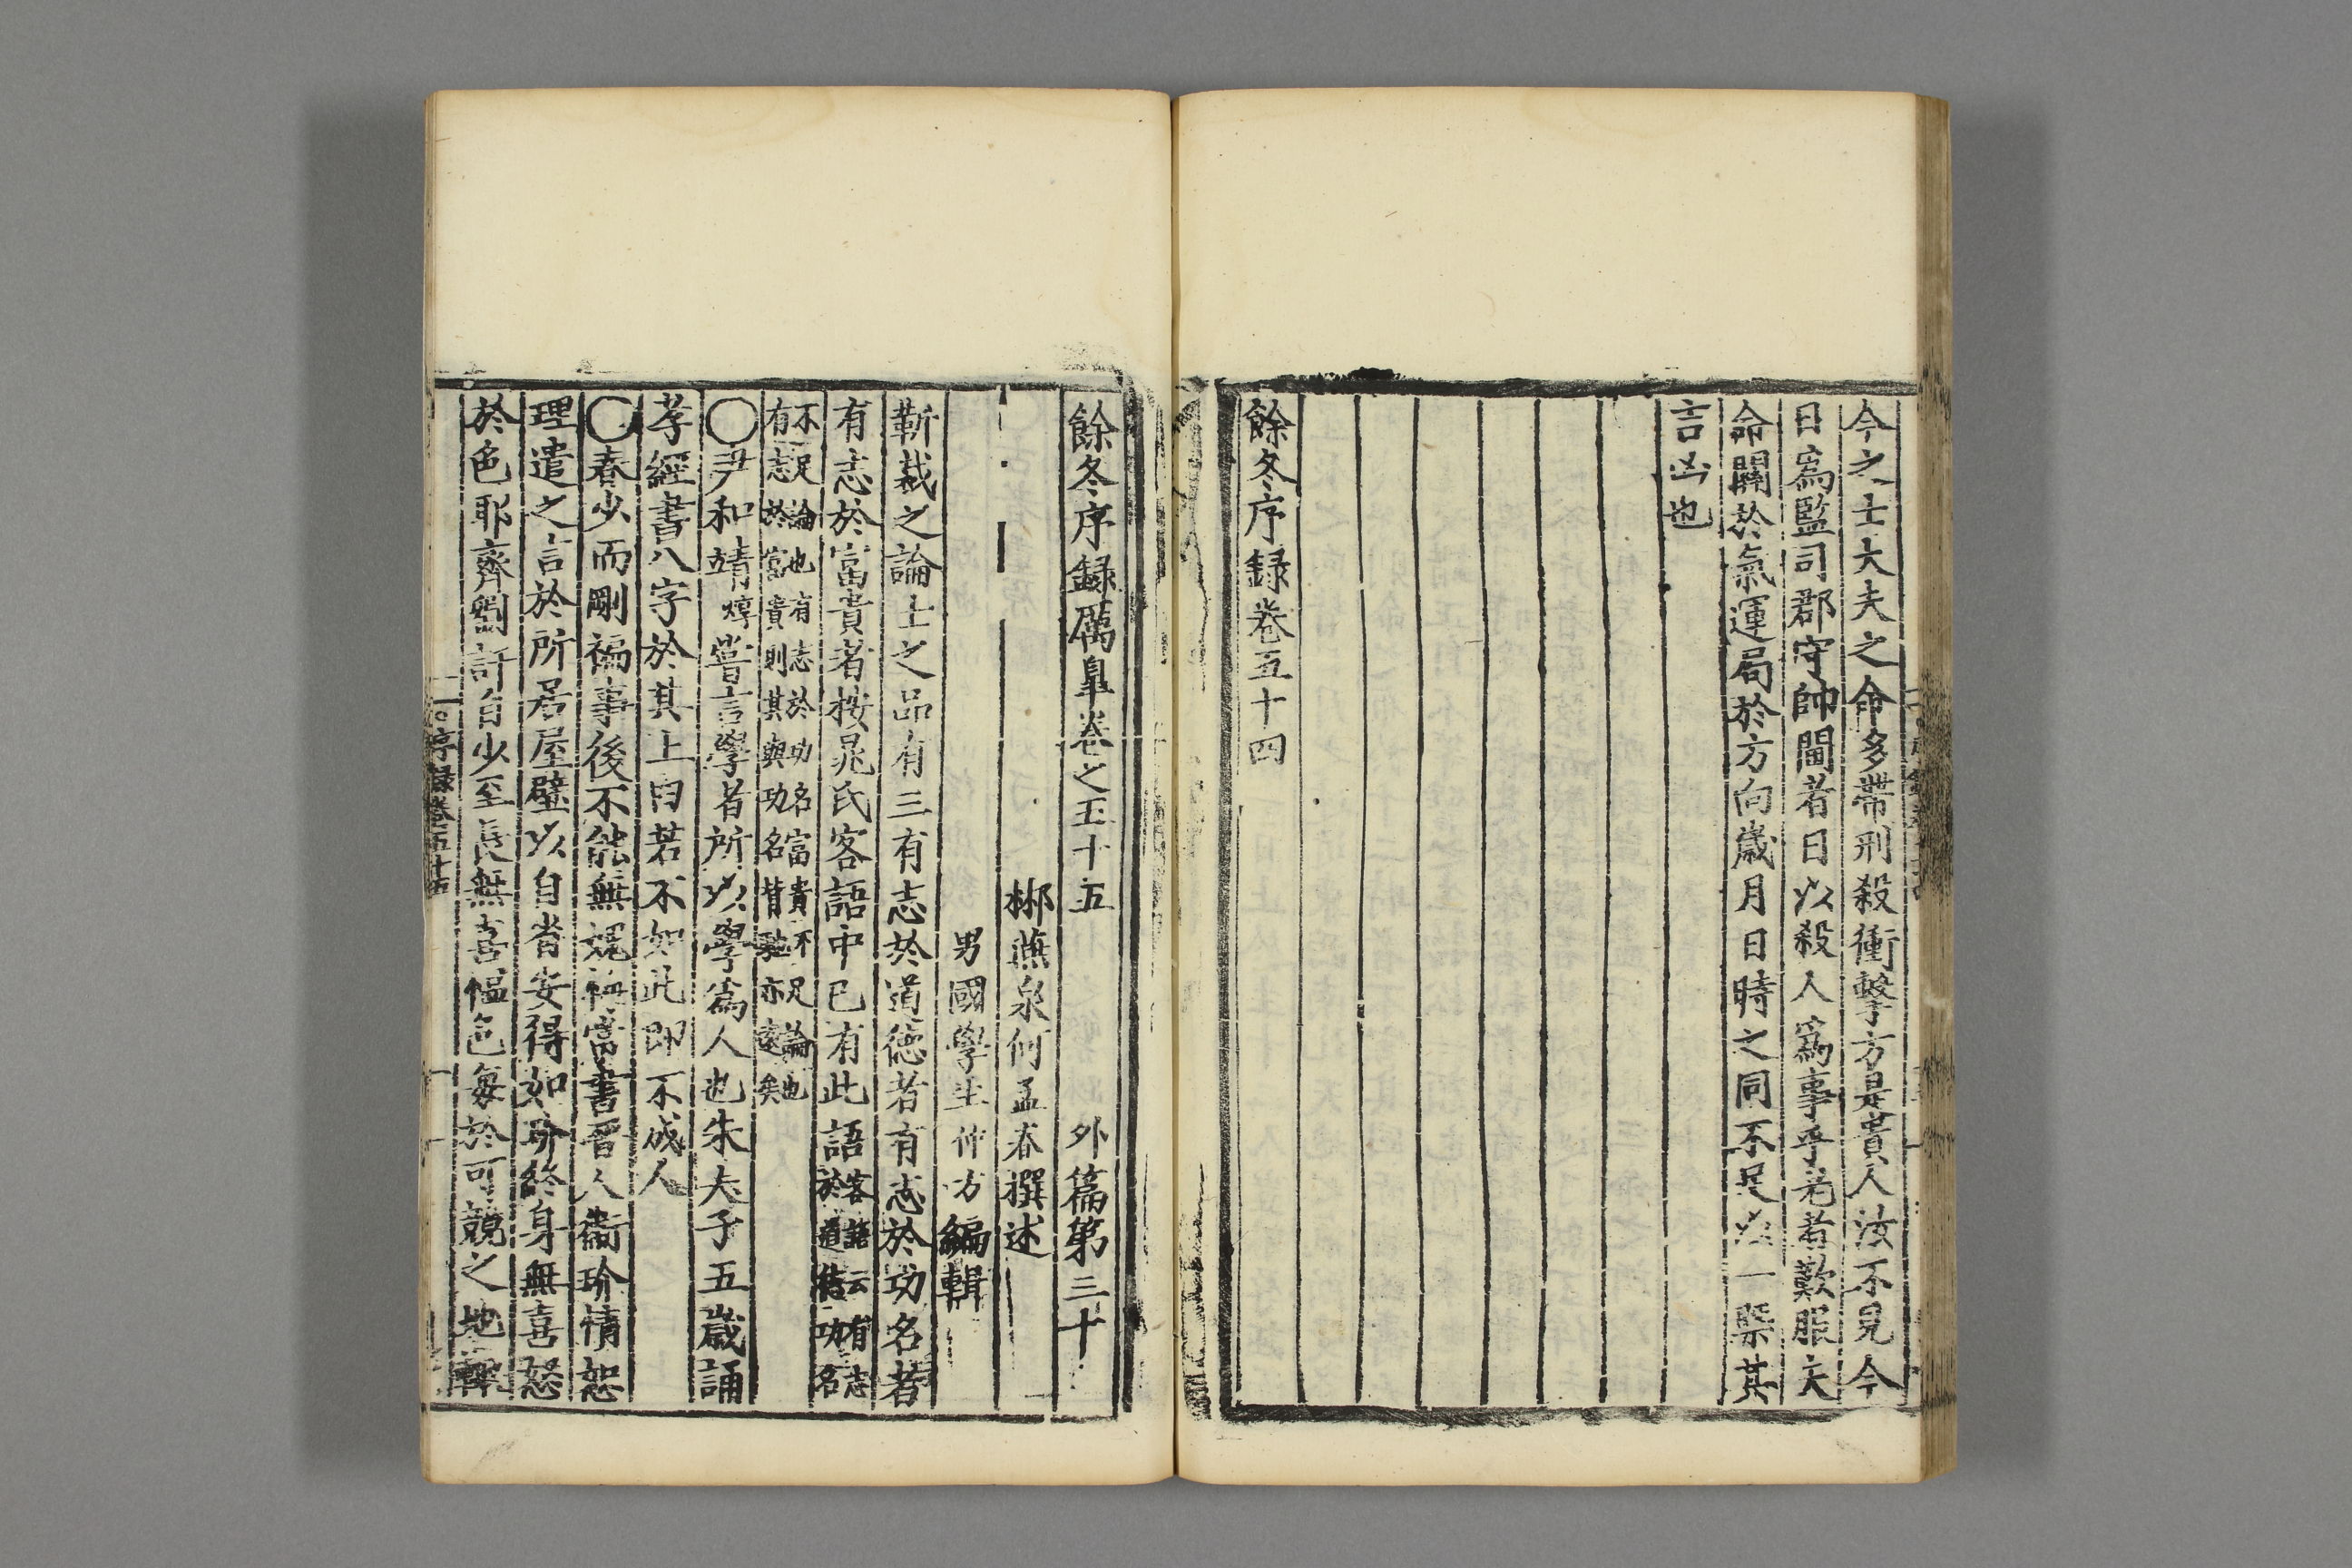 今之士大夫之命多帶刑殺衝擊方是貴人汝不見今
日爲監司郡守帥閫者日以殺人爲事乎老者歎服夫
命關於氣運局於方向歳月日時之同不足以一槩其
吉凶也
餘冬序録卷五十四
餘冬序録厲臯卷之五十五 外篇第三十
郴燕泉何孟春撰述
男國學生仲方編輯
靳裁之論士之品有三有志於道德者有志於功名者
有志於富貴者按晁氏客語中已有此語客語云有志於道德功名
不足論也有志於功名富貴不足論也有志於富貴則其與功名背馳亦遠矣
〇尹和靖焞嘗言學者所以學爲人也朱夫子五歳誦
孝經書八字於其上曰若不如此即不成人
〇春少而剛褊事後不能無媿輙嘗書晉人衞玠情恕
理遣之言於所居屋壁以自省安得如玠終身無喜怒
於色耶齊劉訏自少至長無喜慍色每於可競之地輙
序録卷五十五